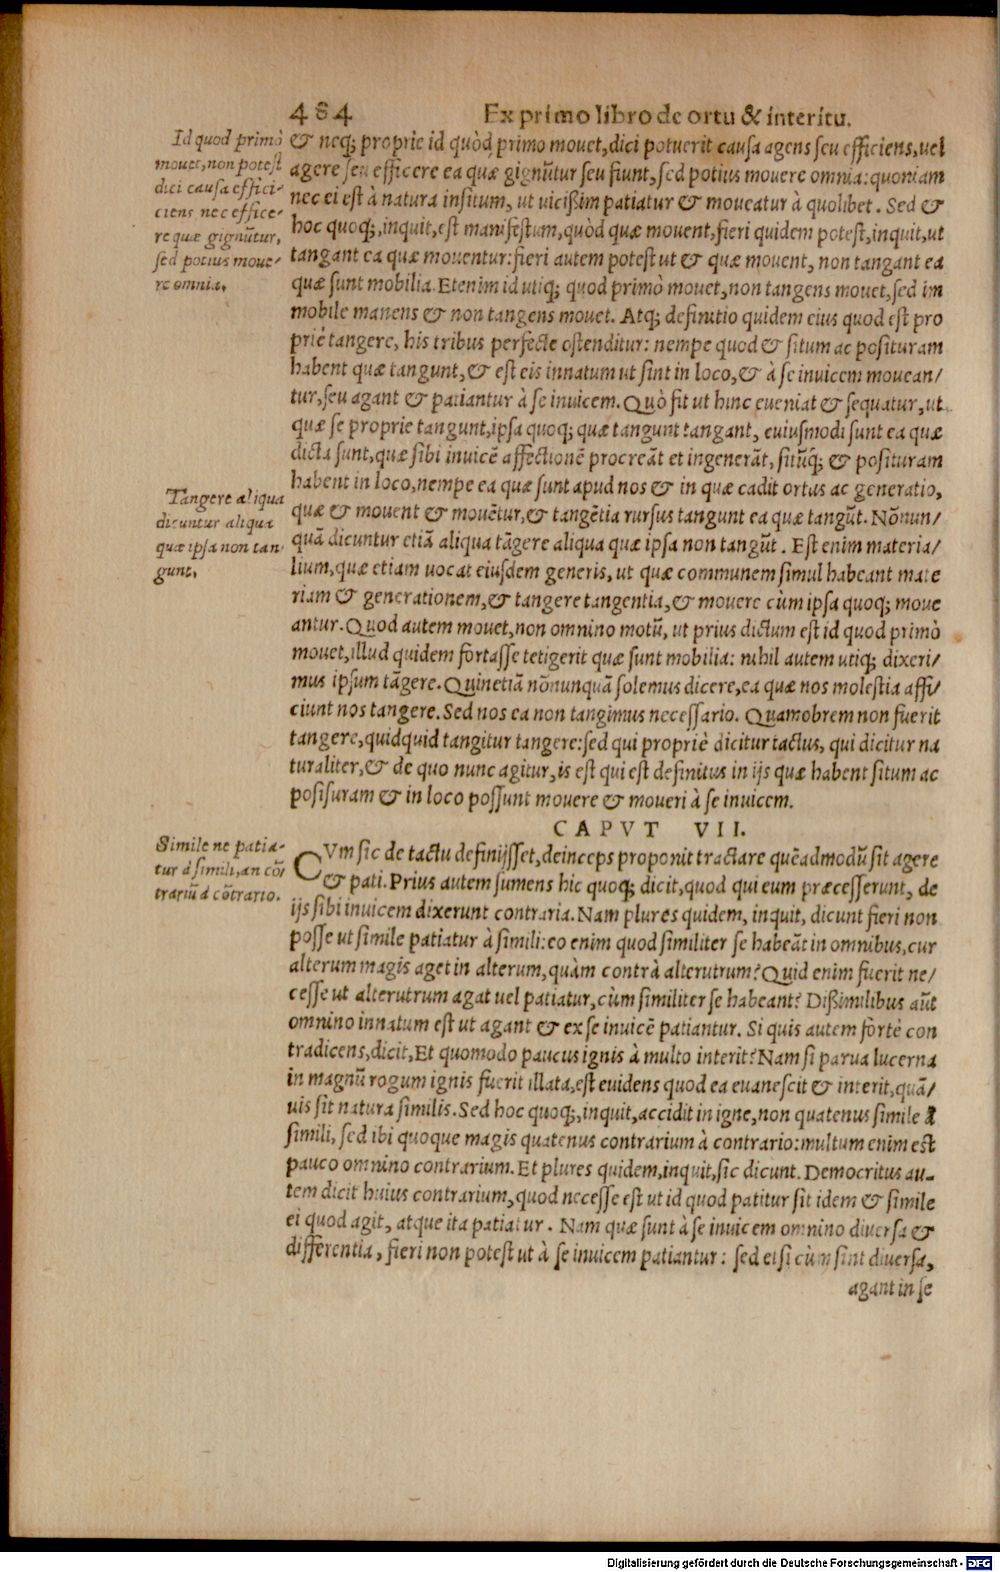 484 Ex primo libro de ortu & interitu.
Id quod primò
mouet, non potest
dici causa effici-
ciens nec effice-
re quæ gignũtur,
sed potius moue-
re omnia.
& neq; proprie id quòd primo mouet, dici potuerit causa agens seu efficiens, uel
agere seu efficere ea quæ gignũtur seu fiunt, sed potius mouere omnia: quoniam
nec ei est à natura insitum, ut uicißim patiatur & moueatur à quolibet. Sed &
hoc quoq;, inquit, est manifestum, quòd quæ mouent, fieri quidem potest, inquit, ut
tangant ea quæ mouentur: fieri autem potest ut & quæ mouent, non tangant ea
quæ sunt mobilia. Etenim id utiq; quod primò mouet, non tangens mouet, sed im
mobile manens & non tangens mouet. Atq; definitio quidem eius quod est pro
priè tangere, his tribus perfecte ostenditur: nempe quod & situm ac posituram
habent quæ tangunt, & est eis innatum ut sint in loco, & à se inuicem mouean/
tur, seu agant & patiantur à se inuicem. Quò fit ut hinc eueniat & sequatur, ut
quæ se proprie tangunt, ipsa quoq; quæ tangunt tangant, euiusmodi sunt ea quæ
dicta sunt, quæ sibi inuicẽ affectionẽ procreãt et ingenerãt, sitũq; & posituram
habent in loco, nempe ea quæ sunt apud nos & in quæ cadit ortus ac generatio,
quæ & mouent & mouẽtur, & tangẽtia rursus tangunt ea quæ tangũt. Nõnun/
quã dicuntur etiã aliqua tãgere aliqua quæ ipsa non tangũt. Est enim materia/
lium, quæ etiam uocat eiusdem generis, ut quæ communem simul habeant mate
riam & generationem, & tangere tangentia, & mouere cùm ipsa quoq; moue
antur. Quod autem mouet, non omnino motũ, ut prius dictum est id quod primò
mouet, illud quidem fortasse tetigerit quæ sunt mobilia: nihil autem utiq; dixeri/
mus ipsum tãgere. Quinetiã nõnunquã solemus dicere, ea quæ nos molestia affi/
ciunt nos tangere. Sed nos ea non tangimus necessario. Quamobrem non fuerit
tangere, quidquid tangitur tangere: sed qui propriè dicitur tactus, qui dicitur na
turaliter, & de quo nunc agitur, is est qui est definitus in ijs quæ habent situm ac
posisuram & in loco possunt mouere & moueri à se inuicem.
Tangere aliqua
dicuntur aliqua
quæ ipsa non tan
gunt.
CAPVT VII.
Simile ne patia-
tur à simili, an cõ/
trariũ à cõtrario.
CVm sic de tactu definijsset, deinceps proponit tractare quẽadmodũ sit agere
& pati. Prius autem sumens hic quoq; dicit, quod qui eum præcesserunt, de
ijs sibi inuicem dixerunt contraria. Nam plures quidem, inquit, dicunt fieri non
posse ut simile patiatur à simili: eo enim quod similiter se habeãt in omnibus, cur
alterum magis aget in alterum, quàm contrà alterutrum? Quid enim fuerit ne/
cesse ut alterutrum agat uel patiatur, cùm similiter se habeant? Dißimilibus aũt
omnino innatum est ut agant & ex se inuicẽ patiantur. Si quis autem fortè con
tradicens, dicit, Et quomodo paucus ignis à multo interit? Nam si parua lucerna
in magnũ rogum ignis fuerit illata, est euidens quod ea euanescit & interit, quã/
uis sit natura similis. Sed hoc quoq;, inquit, accidit in igne, non quatenus simile à
simili, sed ibi quoque magis quatenus contrarium à contrario: multum enim est
pauco omnino contrarium. Et plures quidem, inquit, sic dicunt. Democritus au-
tem dicit huius contrarium, quod necesse est ut id quod patitur sit idem & simile
ei quod agit, atque ita patiatur. Nam quæ sunt à se inuicem omnino diuersa &
differentia, fieri non potest ut à se inuicem patiantur: sed etsi cùm sint diuersa,
agant in se
Digitalisierung gefördert durch die Deutsche Forschungsgemeinschaft - DFG